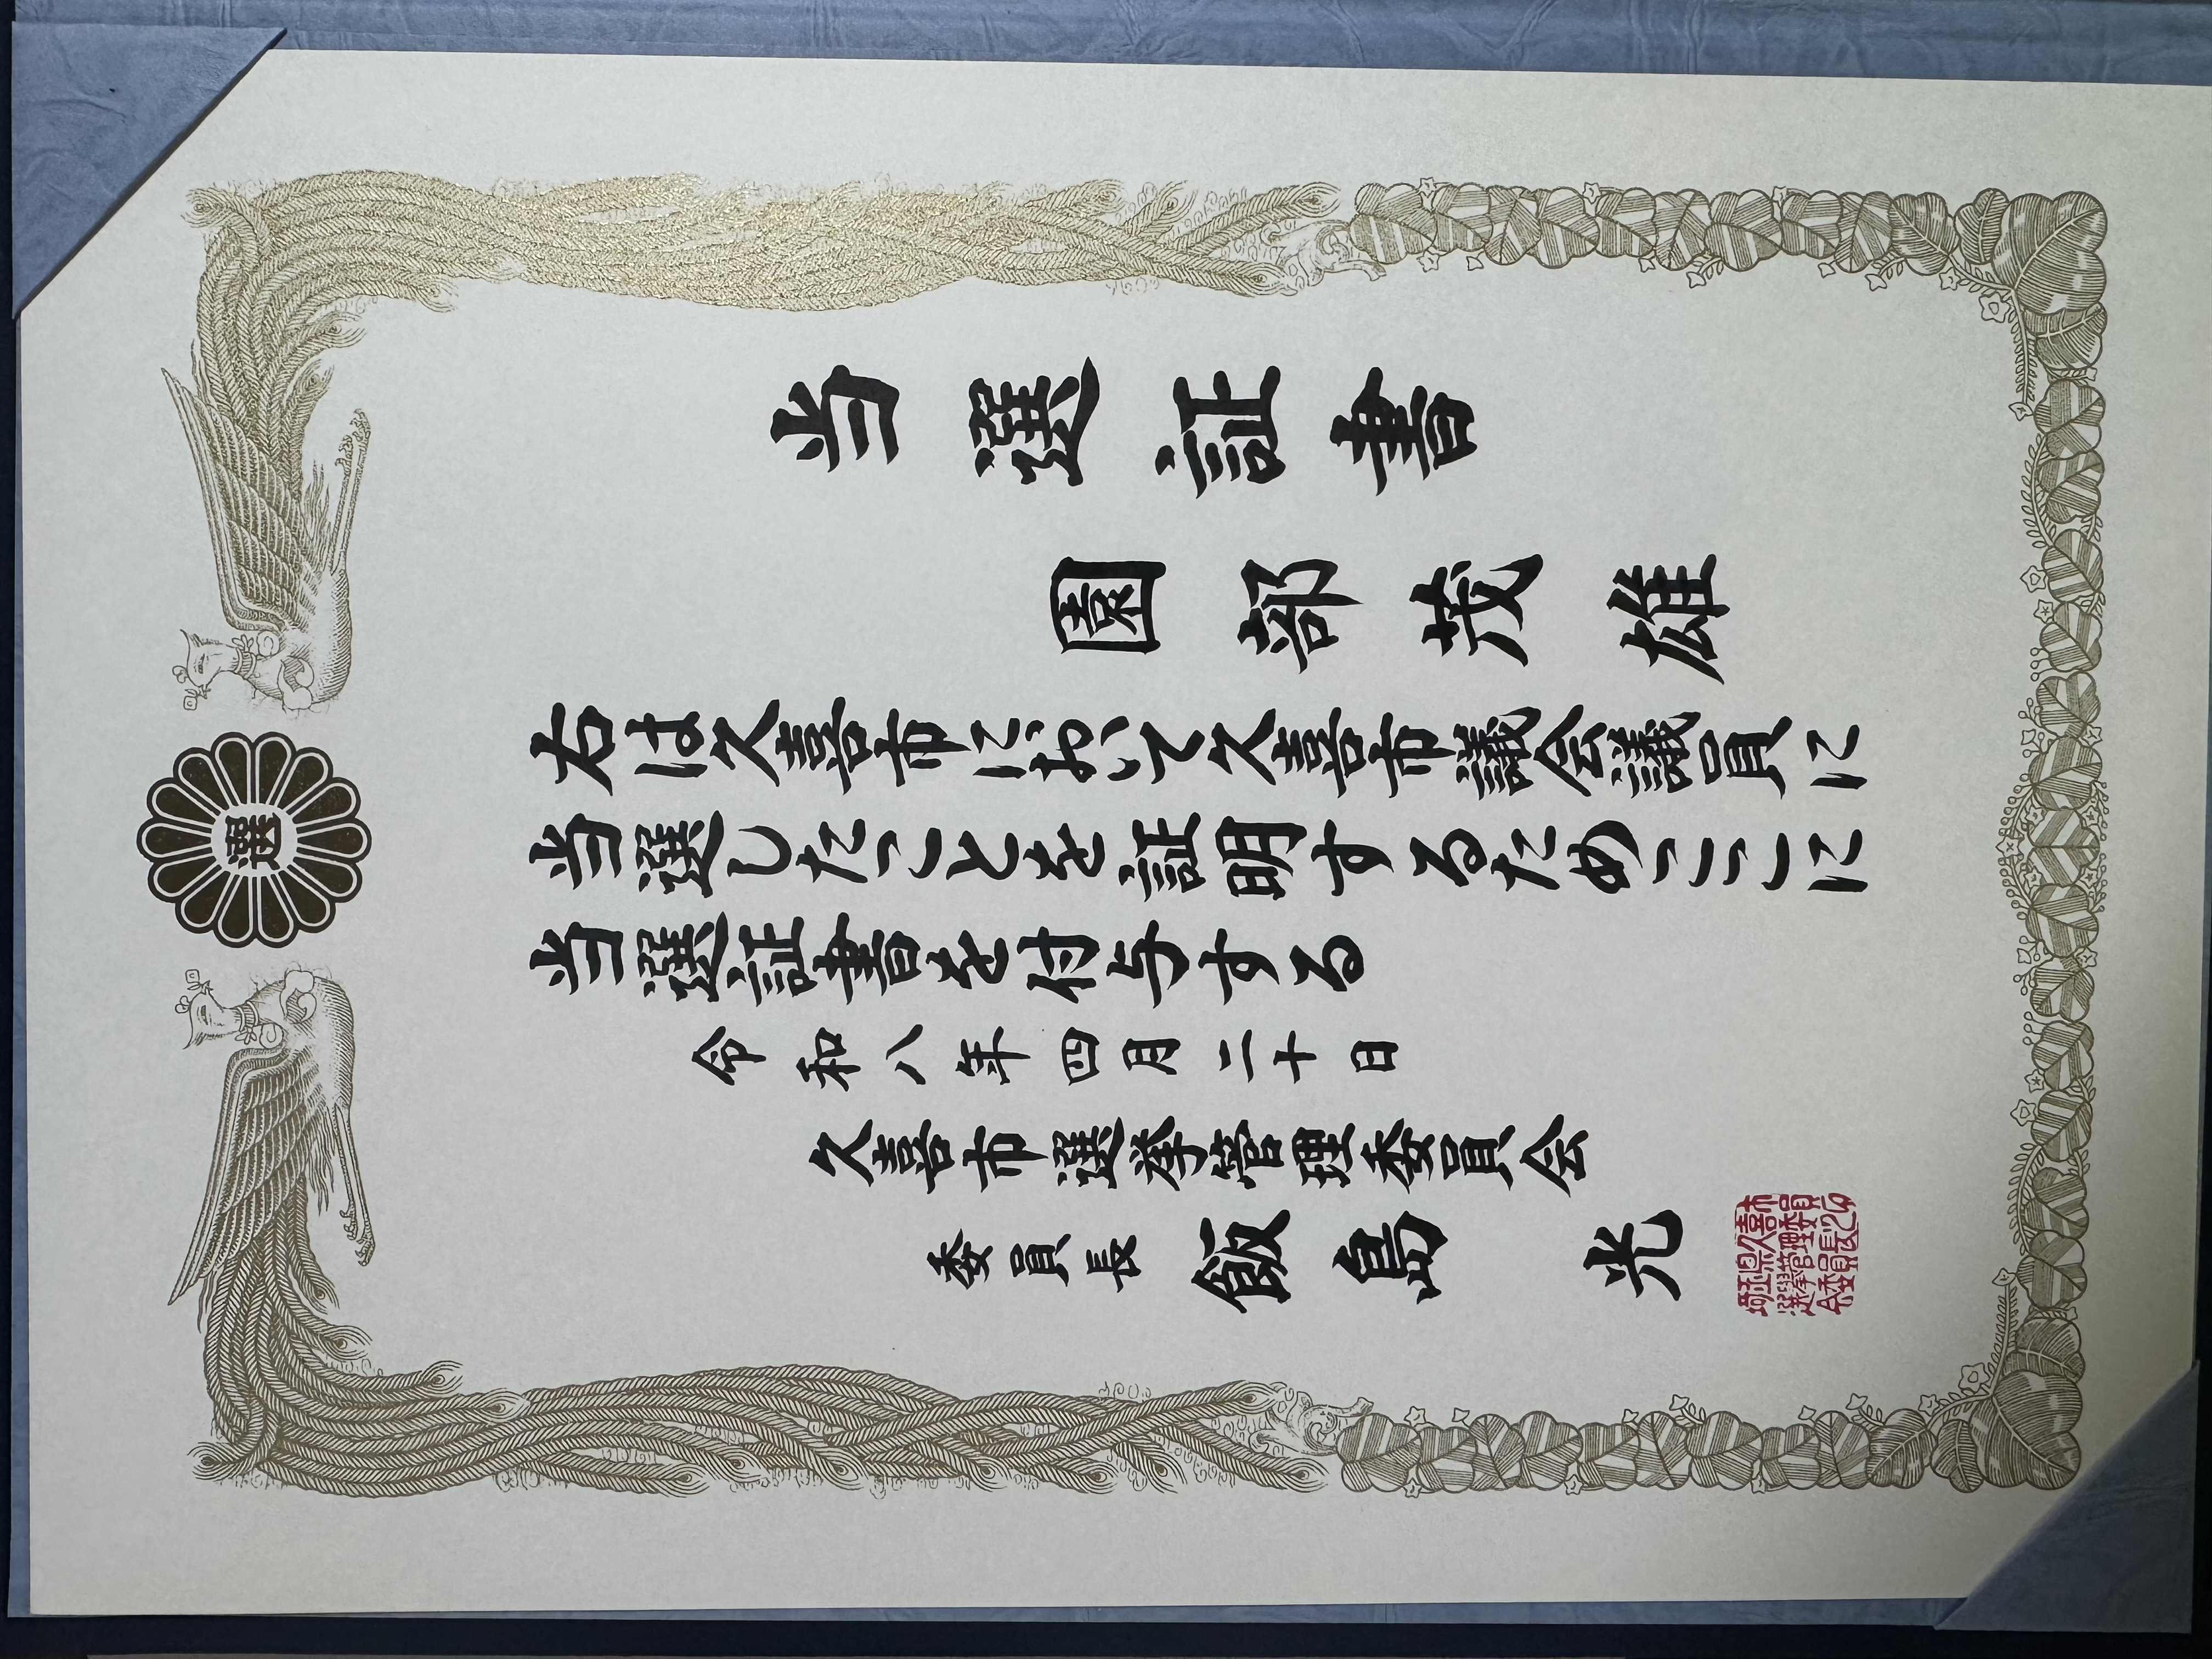 選
当選証書
園部茂雄
右は久喜市において久喜市議会議員に
当選したことを証明するためここに
当選証書を付与する
令和八年四月二十日
久喜市選挙管理委員会
委員長 飯島 光
埼玉県久喜市
選挙管理委員
会委員長之印